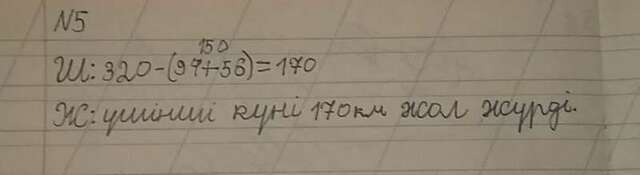 N5
150
Ш: 320-(97+56)=170
Ж: үшінші күні 170км жол жүрді.